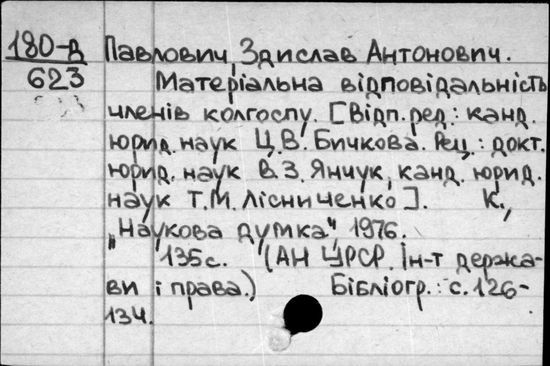 180-В Павлович, Здислав Антонович.
623 Матеріальна відповідальність
членів колгоспу. [Відп. ред.: канд.
юрид. наук Ц.В. Бичкова. Рец.: докт.
юрид. наук В.З. Янчук, канд. юрид.
наук Т.М. Лісниченко]. К.,
„Наукова думка", 1976.
135с. (АН УРСР. Ін-т держа-
ви і права.) Бібліогр.: с. 126-
134.